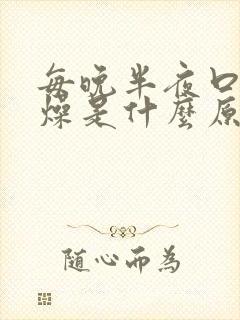 每晚半夜口
燥是什麼原
随心而為